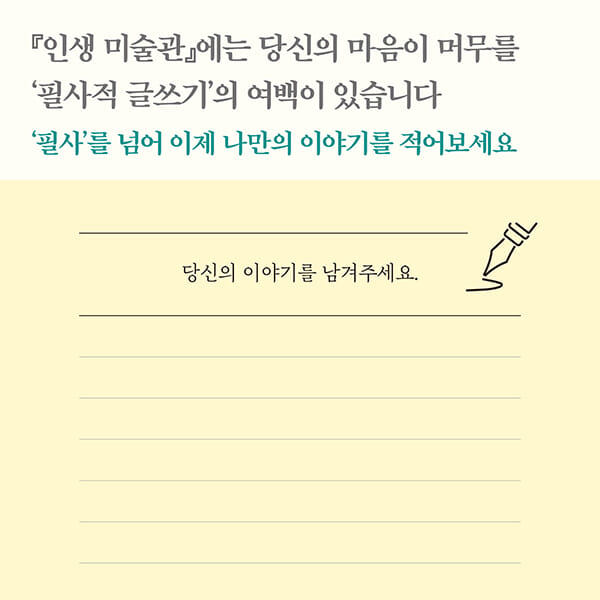 『인생 미술관』에는 당신의 마음이 머무를
‘필사적 글쓰기’의 여백이 있습니다
‘필사’를 넘어 이제 나만의 이야기를 적어보세요
당신의 이야기를 남겨주세요.